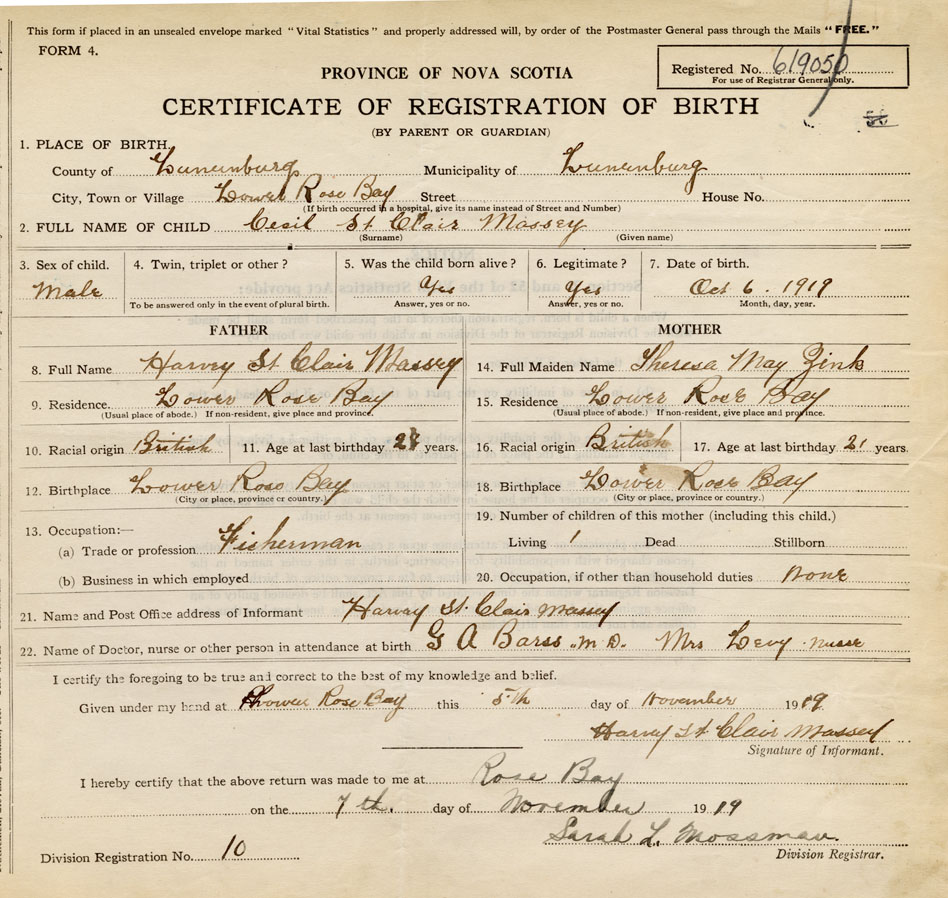 This form if placed in an unsealed envelope marked "Vital Statistics" and properly addressed will, by order of the Postmaster General pass through the Mails "FREE."
FORM 4.
Registered No. 619050
For use of Registrar General only.
PROVINCE OF NOVA SCOTIA
CERTIFICATE OF REGISTRATION OF BIRTH
(BY PARENT OR GUARDIAN)
1. PLACE OF BIRTH,
County of Lunenburg Municipality of Lunenburg
City, Town or Village Lower Rose Bay Street House No.
(If birth occurred in a hospital, give its name instead of Street and Number)
2. FULL NAME OF CHILD Cecil St Clair Massey
(Surname) (Given name)
3. Sex of child. 4. Twin, triplet or other? 5. Was the child born alive? 6. Legitimate? 7. Date of birth.
Male Yes Yes Oct 6. 1919
To be answered only in the event of plural birth. Answer, yes or no. Answer, yes or no. Month, day, year.
FATHER MOTHER
8. Full Name Harvey St Clair Massey 14. Full Maiden Name Theresa May Zink
9. Residence. Lower Rose Bay 15. Residence Lower Rose Bay
(Usual place of abode.) If non-resident, give place and province. (Usual place of abode.) If non-resident, give place and province.
10. Racial origin British 11. Age at last birthday years. 16. Racial origin British 17. Age at last birthday 21 years.
12. Birthplace Lower Rose Bay 18. Birthplace Lower Rose Bay
(City or place, province or country.) (City or place, province or country.)
13. Occupation:— 19. Number of children of this mother (including this child.)
(a) Trade or profession Fisherman Living 1 Dead Stillborn
(b) Business in which employed 20. Occupation, if other than household duties none
21. Name and Post Office address of Informant Harvey St. Clair Massey
22. Name of Doctor, nurse or other person in attendance at birth G A Barss M D. Mrs Levy nurse
I certify the foregoing to be true and correct to the best of my knowledge and belief.
Given under my hand at Lower Rose Bay this 5th day of November 1919
Harvey St Clair Massey
Signature of Informant.
I hereby certify that the above return was made to me at Rose Bay
on the 7th. day of November 1919
Sarah L. Mossman
Division Registrar.
Division Registration No. 10